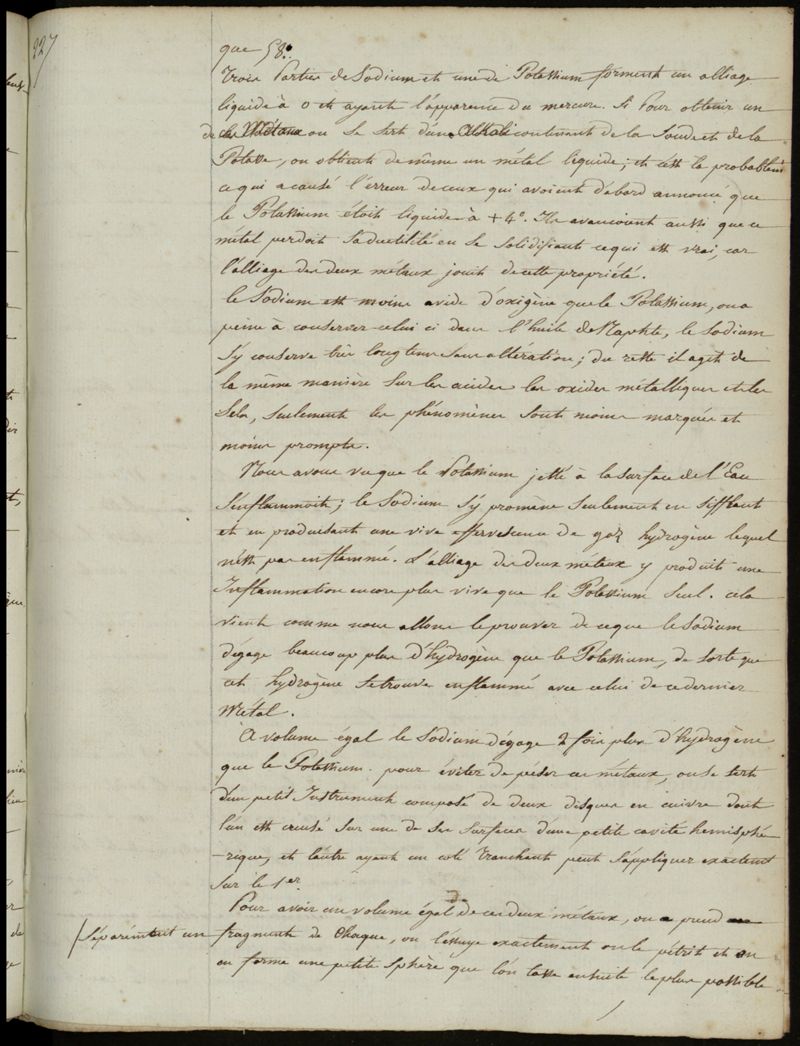 227
que 58°.
Trois Parties de Sodium et une de Potassium forment un alliage
liquide à 0 et ayant l'apparence du mercure. Si Pour obtenir un
de ces Métaux on se sert d'un Alkali contenant de la Soude et de la
Potasse, on obtient de même un métal liquide; et c'est là probablemt
ce qui a causé l'erreur de ceux qui avoient d'abord annoncé que
le Potassium étoit liquide à +4°. Ils avancoient aussi que ce
métal perdoit sa ductilité en se solidifiant ce qui est vrai, car
l'alliage des deux métaux jouit de cette propriété.
Le Sodium est moins avide d'oxigène que le Potassium, on a
peine à conserver celui ci dans l'huile de Naphte, le Sodium
s'y conserve très longtems sans altération; du reste il agit de
la même manière sur les acides les oxides métalliques et les
Sels, seulement les phénomènes sont moins marqués et
moins prompts.
Nous avons vu que le Potassium jetté à la surface de l'Eau
s'enflammoit; le Sodium s'y promène seulement en sifflant
et en produisant une vive effervescence de gaz hydrogène lequel
n'est pas enflammé. L'alliage des deux métaux y produit une
Inflammation encore plus vive que le Potassium seul. cela
vient comme nous allons le prouver de ce que le Sodium
dégage beaucoup plus d'hydrogène que le Potassium, de sorte que
cet hydrogène se trouve enflammé avec celui de ce dernier
Métal.
A volume égal le Sodium dégage 2 fois plus d'hydrogène
que le Potassium. pour éviter de péser ces métaux, on se sert
d'un petit Instrument composé de deux disques en cuivre dont
l'un est creusé sur une de ses surfaces d'une petite cavité hemisphé
-rique, et l'autre ayant un coté tranchant peut s'appliquer exactemt
sur le 1er.
Pour avoir un volume égal de ces deux métaux, on prend
/séparément un fragment de chaque, on l'essuye exactement on le pétrit et on
en forme une petite sphère que l'on tasse ensuite le plus possible